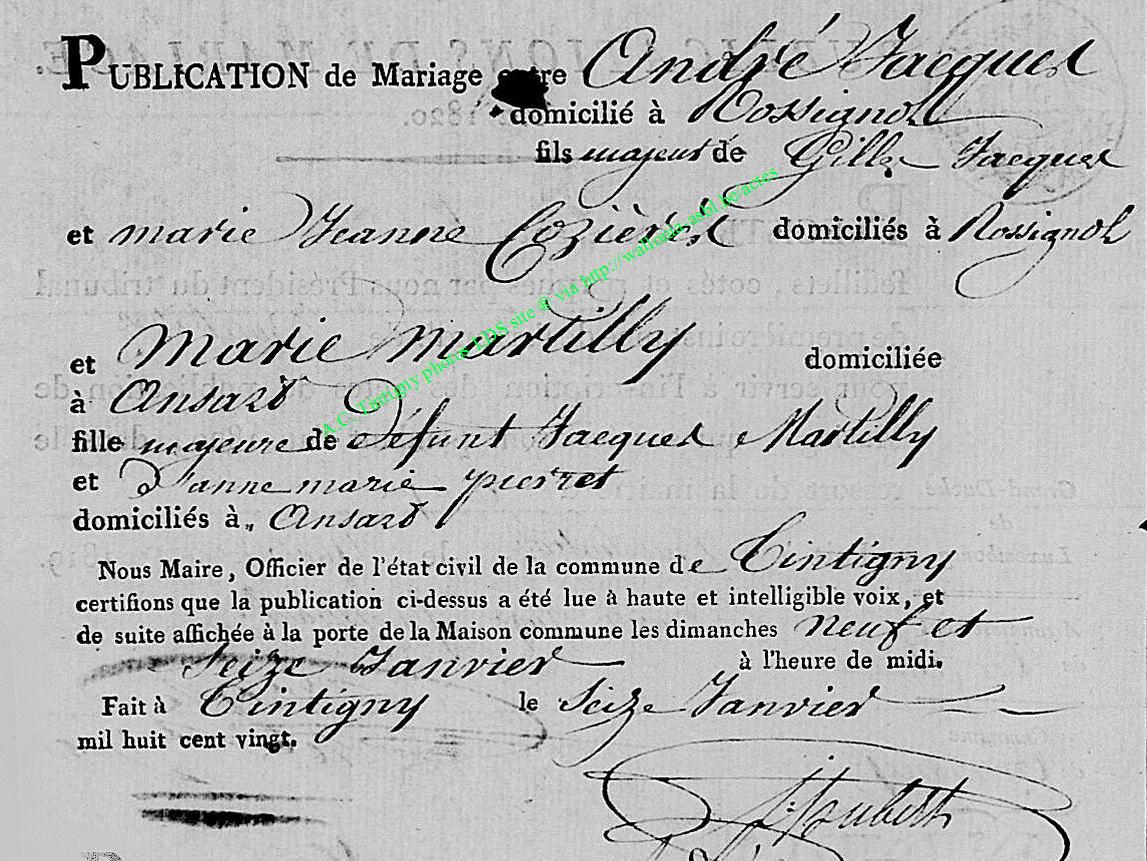 PUBLICATION de Mariage entre André Jacques
domicilié à Rossignol
fils majeur de Gille Jacques
et marie Jeanne Cozières domiciliés à Rossignol
et marie martilly domiciliée
à Ansart
fille majeure de Défunt Jacques Martilly
et D'anne marie pierret
domiciliés à Ansart
Nous Maire, Officier de l'état civil de la commune de Tintigny
certifions que la publication ci-dessus a été lue à haute et intelligible voix, et
de suite affichée à la porte de la Maison commune les dimanches neuf et
Seize Janvier à l'heure de midi.
Fait à Tintigny le Seize Janvier
mil huit cent vingt.
A.C. Tintigny photos EDS site @ via http://wallonia.asbl.be/actes